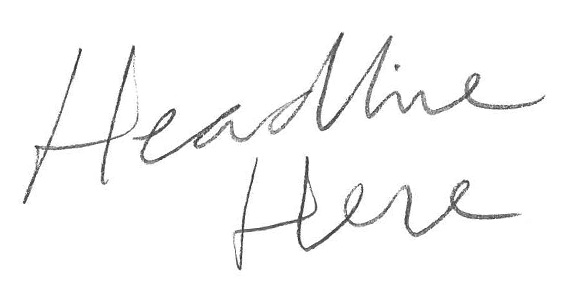 Headline
Here